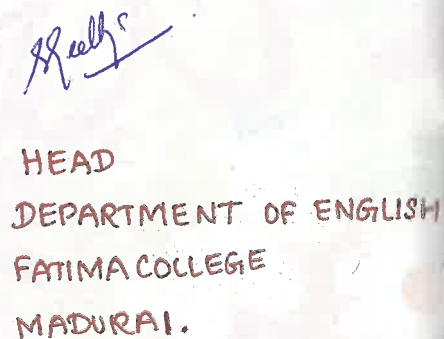 HEAD
DEPARTMENT OF ENGLISH
FATIMA COLLEGE
MADURAI.